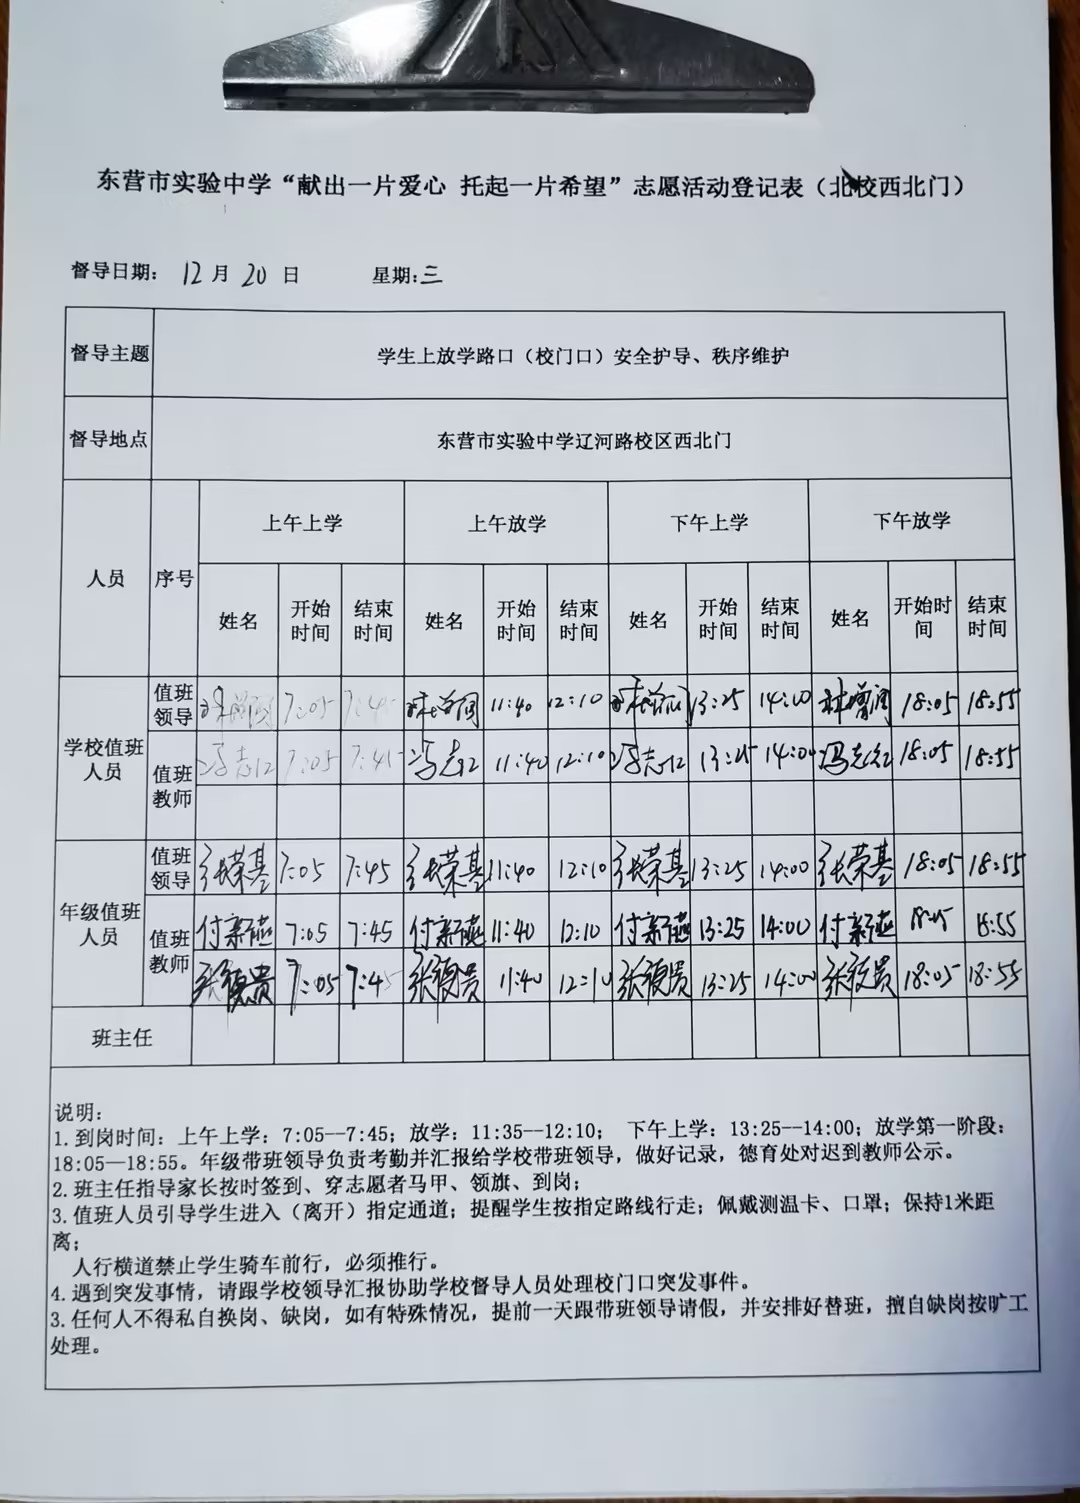 东营市实验中学“献出一片爱心 托起一片希望”志愿活动登记表（北校西北门）
督导日期： 12月20日 星期:三
督导主题 学生上放学路口（校门口）安全护导、秩序维护
督导地点 东营市实验中学辽河路校区西北门
人员 序号 上午上学 上午放学 下午上学 下午放学
姓名 开始时间 结束时间 姓名 开始时间 结束时间 姓名 开始时间 结束时间 姓名 开始时间 结束时间
学校值班人员
值班领导 7:05 7:45 11:40 12:10 13:25 14:00 18:05 18:55
值班教师 冯志红 7:05 7:45 冯志红 11:40 12:10 冯志红 13:25 14:00 冯志红 18:05 18:55
年级值班人员
值班领导 张荣基 7:05 7:45 张荣基 11:40 12:10 张荣基 13:25 14:00 张荣基 18:05 18:55
值班教师 付新燕 7:05 7:45 付新燕 11:40 12:10 付新燕 13:25 14:00 付新燕 18:05 18:55
张德贵 7:05 7:45 张德贵 11:40 12:10 张德贵 13:25 14:00 张德贵 18:05 18:55
班主任
说明:
1.到岗时间：上午上学：7:05--7:45；放学：11:35--12:10； 下午上学：13:25--14:00；放学第一阶段：
18:05—18:55。年级带班领导负责考勤并汇报给学校带班领导，做好记录，德育处对迟到教师公示。
2.班主任指导家长按时签到、穿志愿者马甲、领旗、到岗；
3.值班人员引导学生进入（离开）指定通道；提醒学生按指定路线行走；佩戴测温卡、口罩；保持1米距
离；
人行横道禁止学生骑车前行，必须推行。
4.遇到突发事情，请跟学校领导汇报协助学校督导人员处理校门口突发事件。
3.任何人不得私自换岗、缺岗，如有特殊情况，提前一天跟带班领导请假，并安排好替班，擅自缺岗按旷工
处理。